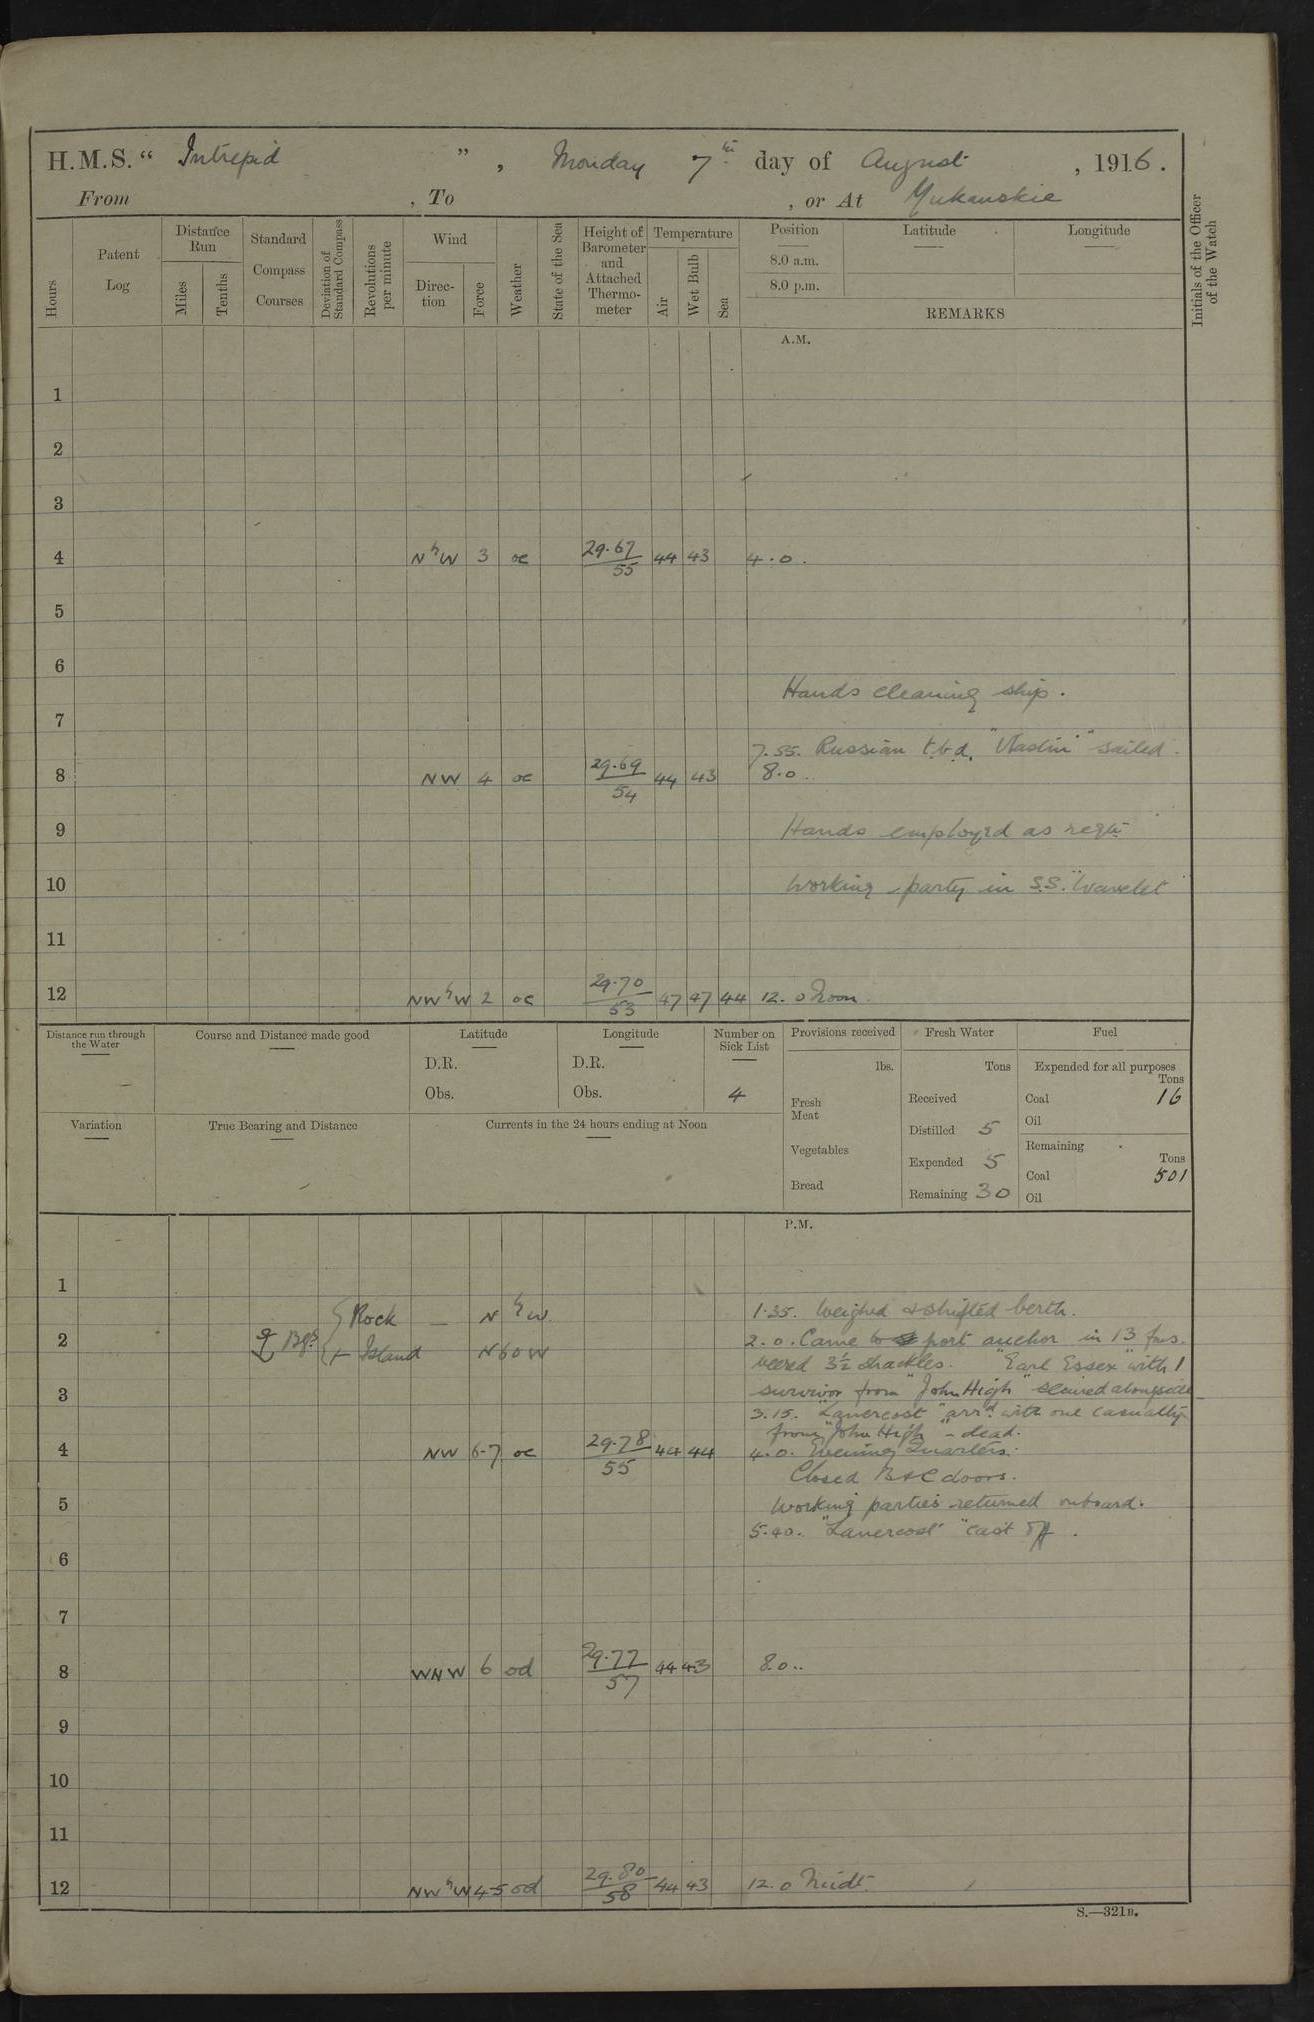 H.M.S. “ Intrepid ” , Monday 7th day of August , 1916.
From , To , or At Yukanskie
Hours
Patent Log
Distance Run
Miles
Tenths
Standard Compass Courses
Deviation of Standard Compass
Revolutions per minute
Wind
Direc- tion
Force
Weather
State of the Sea
Height of Barometer and Attached Thermo- meter
Temperature
Air
Wet Bulb
Sea
Position
8.0 a.m.
8.0 p.m.
Latitude
Longitude
REMARKS
Initials of the Officer of the Watch
A.M.
1
2
3
4 NbW 3 oc 29.67/55 44 43 4.0.
5
6
Hands cleaning ship.
7
7.55. Russian t.b.d. "Vlastin" sailed.
8 NW 4 oc 29.69/54 44 43 8.0..
9 Hands employed as reqte
10 Working party in S.S. "Wavelet
11
12 NWbW 2 oc 29.70/53 47 47 44 12.0 Noon.
Distance run through the Water
Course and Distance made good
Latitude
D.R.
Obs.
Longitude
D.R.
Obs.
Number on Sick List
4
Provisions received
lbs.
Fresh Meat
Vegetables
Bread
Fresh Water
Tons
Received
Distilled 5
Expended 5
Remaining 30
Fuel
Expended for all purposes
Tons
Coal 16
Oil
Remaining
Tons
Coal 501
Oil
Variation
True Bearing and Distance
Currents in the 24 hours ending at Noon
P.M.
1
Rock — NbW 1.35. Weighed & shifted berth.
2 Bgs 2.0. Came to port anchor in 13 fms.
+ Island N60W veered 3½ shackles. "Earl Essex" with 1
3 survivor from "John High" secured alongside
3.15. "Lanercost" arrd. with one casualty
from "John High" - dead.
4 NW 6-7 oc 29.78/55 44 44 4.0. Evening Quarters.
Closed B & C doors.
5 Working parties returned onboard.
5.40. "Lanercost" cast off.
6
7
8 WNW 6 od 29.77/57 44 43 8.0..
9
10
11
12 NWbW 4-5 od 29.80/58 44 43 12.0 Midt.
S.—321B.